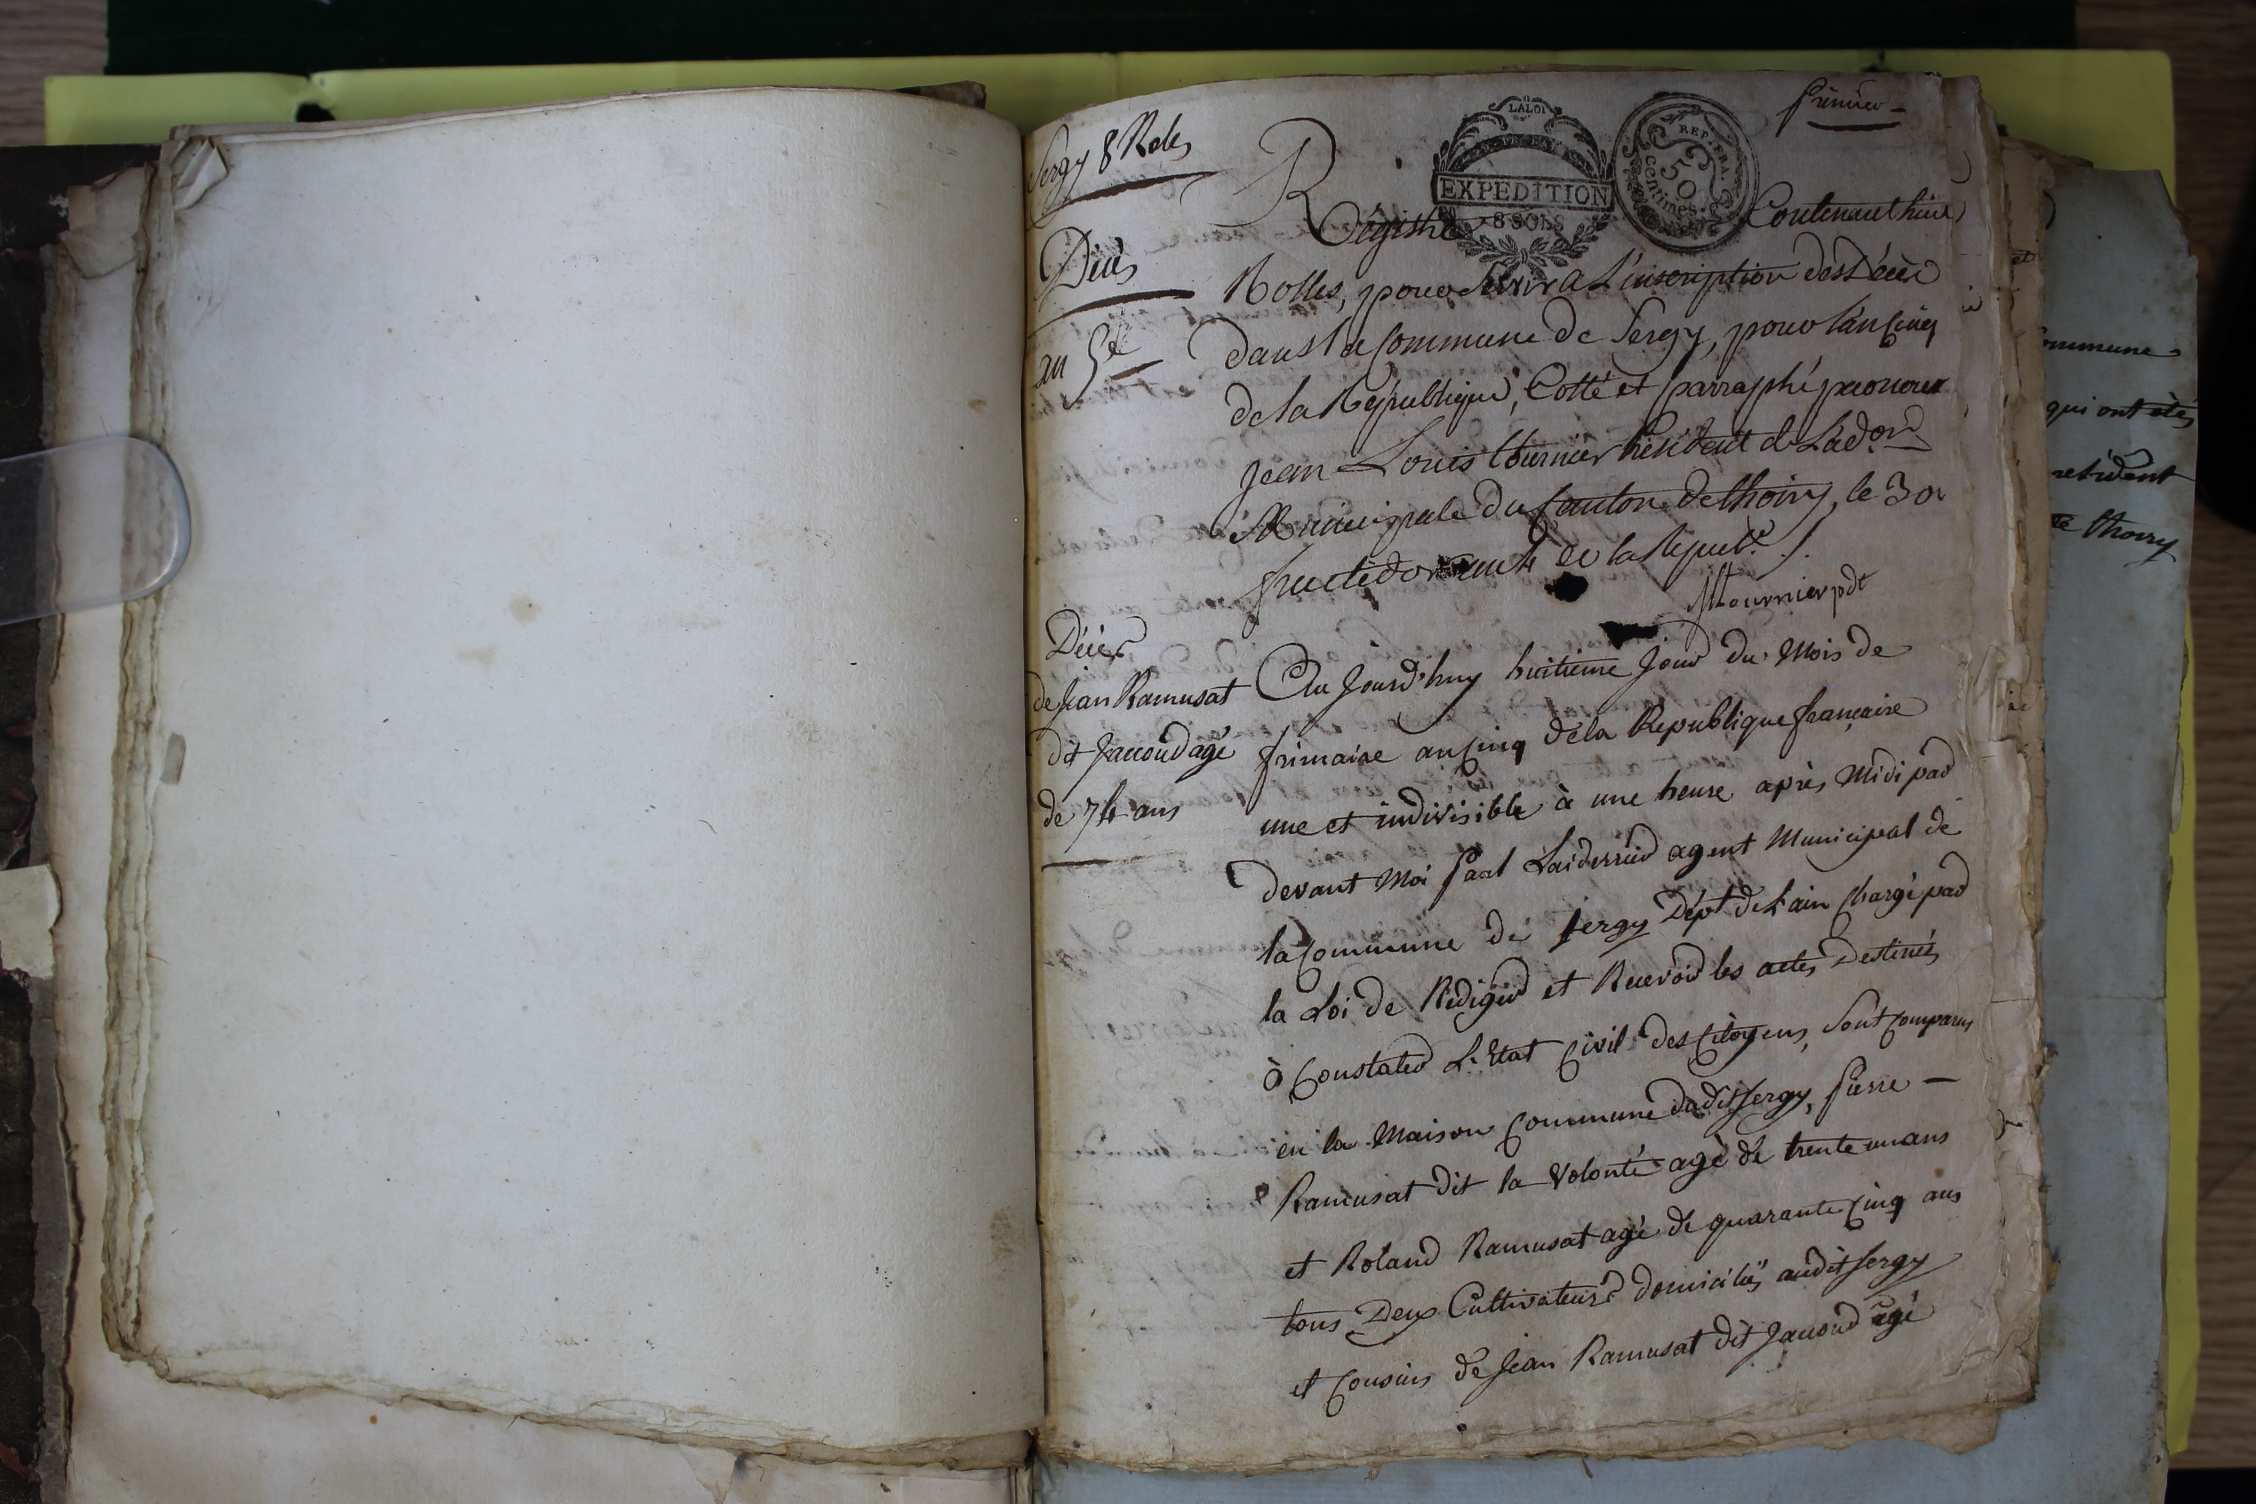 Sergy 8 Roles
Décès
an 5e
premier
LA LOI
EXPEDITION
8 SOLS
REP. FRA.
50
centimes.
Régistre Contenant huit
Rolles, pour servir a L'inscription des Décès
dans la Commune de Sergy, pour l'an Cinq
de la République, Cotté et parraphé par nous
Jean Louis tournier Président de L'ad.on
Municipale du Canton de thoiry, le 30
fructidor an 4 de la Repub.e /.
JLtournier pdt
Décès
de Jean Ramusat
dit Jacoud agé
de 74 ans
Au Jourd'huy huitieme Jour du Mois de
frimaire an Cinq déla République françaire
une et indivisible à une heure après Midi par
devant Moi Paul Laiderrier agent Municipal de
la Commune de Sergy Dépt de L'ain Chargé par
la Loi de Rédiger et Recevoir les actes Destinés
à Constater L'Etat Civil des Citoyens, sont Comparus
en la Maison Commune dudit Sergy, Pierre -
Ramusat dit la Volonté agé de trente un ans
et Roland Ramusat agé de quarante Cinq ans
tous Deux Cultivateurs domiciliés audit Sergy
et Cousins de Jean Ramusat dit Jacoud agé
ommune
qui ont étés
résident
thoiry